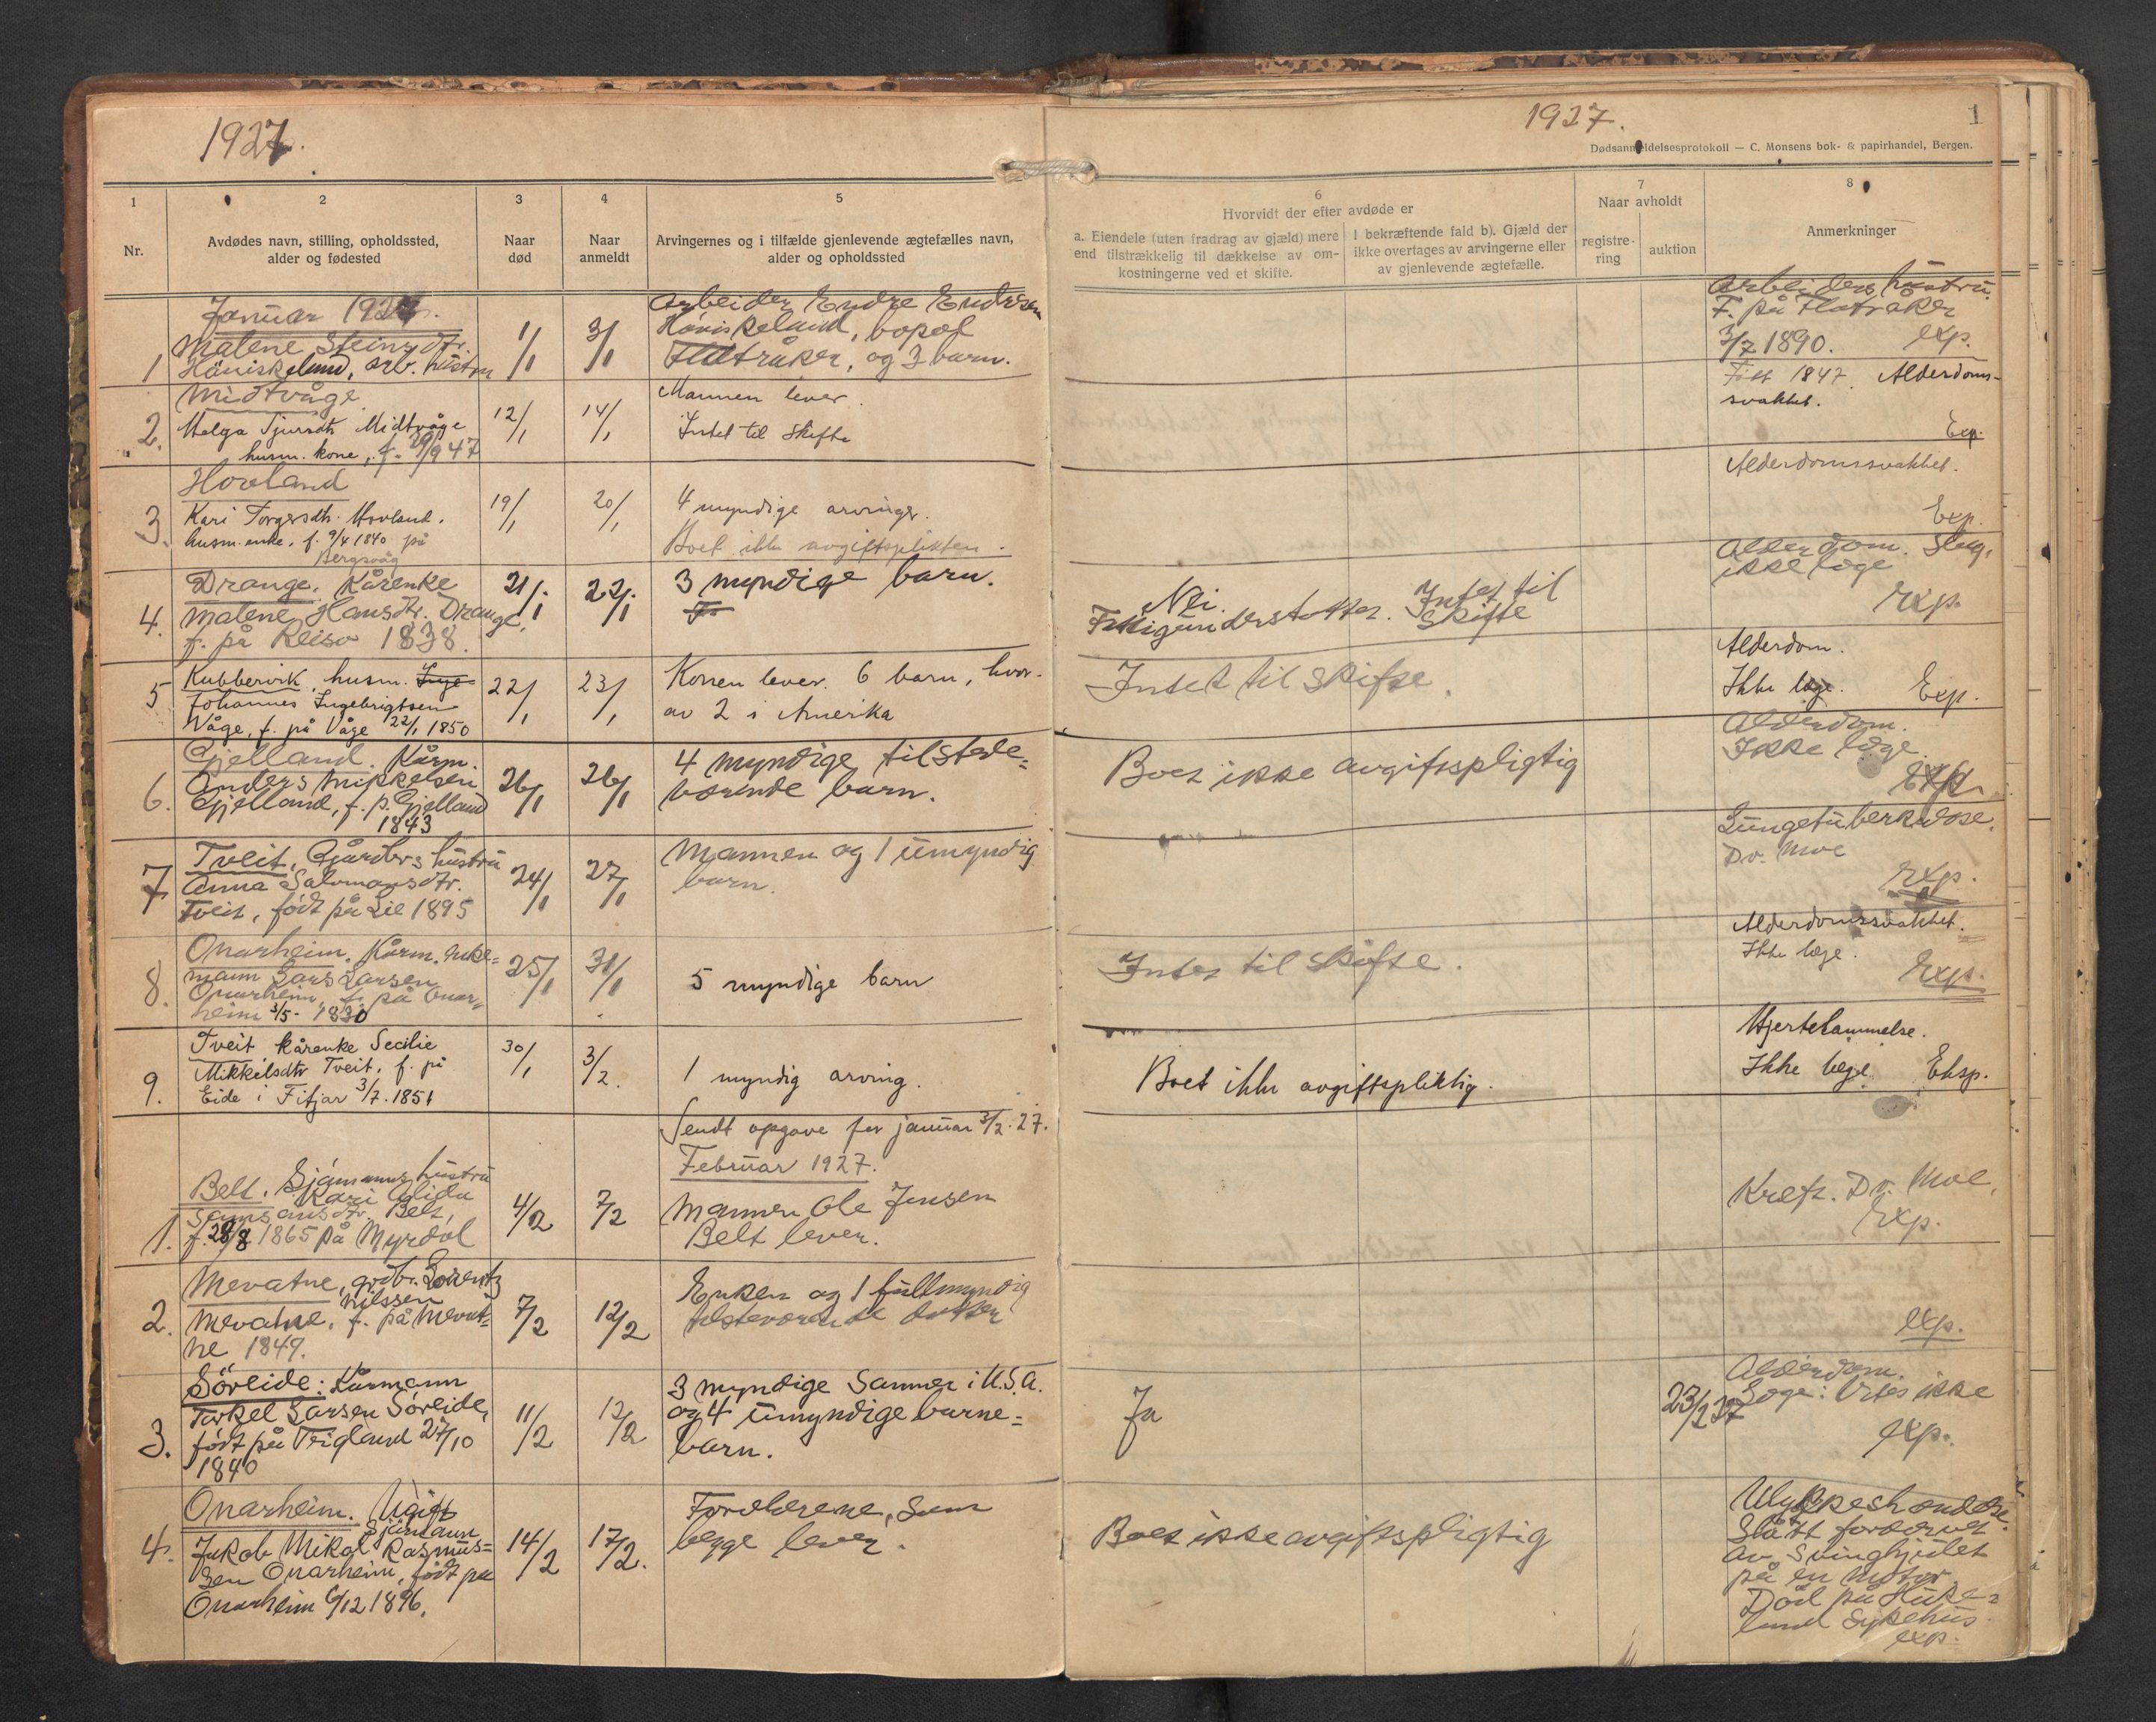 1927.
1927.
1
Dødsanmeldelsesprotokoll — C. Monsens bok- & papirhandel, Bergen.
1
Nr.
2
Avdødes navn, stilling, opholdssted,
alder og fødested
3
Naar
død
4
Naar
anmeldt
5
Arvingernes og i tilfælde gjenlevende ægtefælles navn,
alder og opholdssted
6
Hvorvidt der efter avdøde er
a. Eiendele (uten fradrag av gjæld) mere
end tilstrækkelig til dækkelse av om-
kostningerne ved et skifte.
I bekræftende fald b). Gjæld der
ikke overtages av arvingerne eller
av gjenlevende ægtefælle.
7
Naar avholdt
registre-
ring
auktion
8
Anmerkninger
Januar 1927.
1
Malene Steinsdtr.
Höviskeland, arb. hustru
1/1
3/1
Arbeider Endre Endresen
Höviskeland, bopæl
Flatråker, og 3 barn.
Arbeiders hustru.
F. på Flatråker
3/7 1890. Exp.
2.
Midtvåge
Helga Sjursdtr Midtvåge
husm. kone, f. 29/9 47
12/1
14/1
Mannen lever.
Intet til skifte
Født 1847. Alderdoms-
svakhet.
Exp.
3.
Hovland
Kari Torgersdtr. Hovland.
husm. enke. f. 9/4 1840 på
Bergsvåg
19/1
20/1
4 myndige arvinger.
Boet ikke avgiftsplikten.
Alderdomssvakhet.
Exp.
4.
Drange. Kårenke
Malene Hansdtr. Drange,
f. på Reiso 1838.
21/1
22/1
3 myndige barn.
Nei.
Fattigunderstöttet.
Intet til
skifte
Alderdom.
ikke læge
Exp.
5
Kubbervik, husm. Inge
Johannes Ingebrigtsen
Våge, f. på Våge 22/1 1850
22/1
23/1
Konen lever. 6 barn, hvor-
av 2 i Amerika
Intet til skifte.
Alderdom.
Ikke læge. Exp.
6.
Gjelland. Kårm.
Anders Mikkelsen
Gjelland, f. p. Gjelland
1843
26/1
26/1
4 myndige tilstede=
værende barn.
Boet ikke avgiftspligtig
Alderdom.
Ikke læge
Exp.
7
Tveit. Gårdbrs hustru
Anna Salomonsdtr.
Tveit, født på Lie 1895
24/1
27/1
Mannen og 1 umyndig
barn.
Lungetuberkulose.
Dr. Moe
Exp.
8.
Onarheim. Kårm. enke=
mann Lars Larsen
Onarheim, f. på Onar=
heim 3/5- 1830
25/1
31/1
5 myndige barn
Intet til skifte.
Alderdomssvakhet.
Ikke læge.
Exp.
9.
Tveit kårenke Secilie
Mikkelsdtr Tveit, f. på
Eide i Fitjar 3/7. 1851
30/1
3/2.
1 myndig arving.
Boet ikke avgiftspliktig.
Hjertelammelse.
Ikke læge. Eksp.
Sendt opgave for januar 3/2. 27.
Februar 1927.
1.
Belt. Sjömanns hustru
Kari Olida
Samsonsdtr. Belt,
f. 28/8 1865 på Myrdal
4/2
7/2
Mannen Ole Jensen
Belt lever.
Kreft. Dr. Moe,
Exp.
2.
Mevatne, grdbr. Lorentz
Nilssen
Mevatne, f. på Mevat=
ne 1849.
7/2
12/2
Enken og 1 fullmyndig
tilsteværende datter
Exp.
3.
Söreide: Kårmann
Torkel Larsen Söreide,
født på Teigland 27/10
1840
11/2
12/2
3 myndige Sønner i U.S.A.
og 4 umyndige barne=
barn.
Ja
23/2 27
Alderdom.
Læge: Vites ikke
exp.
4.
Onarheim. Ugift
Sjömann
Jakob Mikal Rasmus=
sen Onarheim, født på
Onarheim 6/12 1896.
14/2
17/2.
Foreldrene, som
begge lever.
Boet ikke avgiftspligtig
Ulykkeshændelse.
Slått fordervet
av Svinghjulet
på en motor.
Död på Hauke=
land Sykehus.
exp.